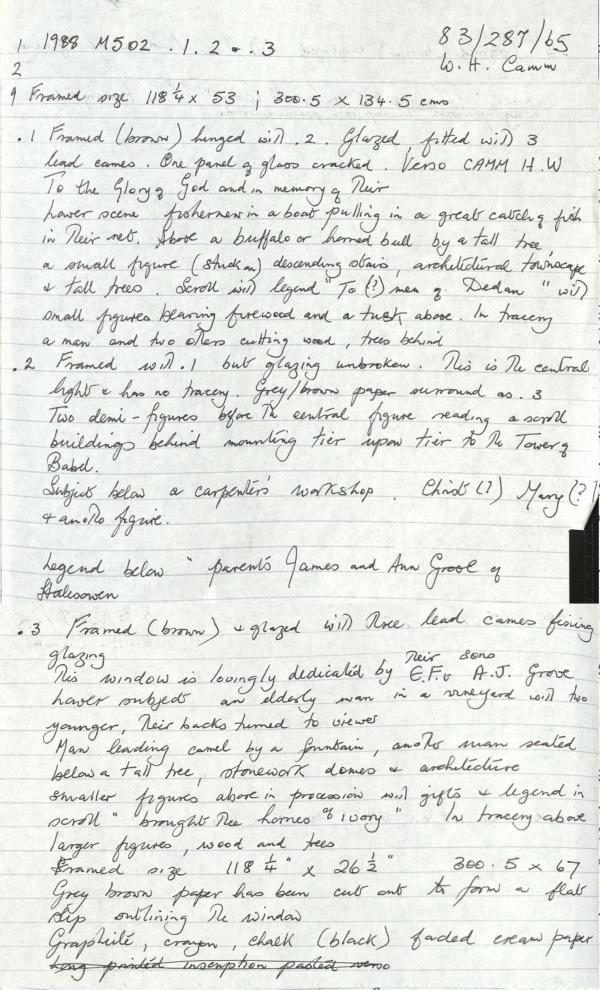 1 1988 M502 .1. 2 & .3
83/287/65
2
W. H. Camm
9 Framed size 118 ¼ x 53 ; 300.5 x 134.5 cms
.1 Framed (brown) hinged with .2. Glazed, fitted with 3
lead cames. One panel of glass cracked Verso CAMM H.W
To the Glory of God and in memory of Their
Lower scene fishermen in a boat pulling in a great catch of fish
in Their net. Above a buffalo or horned bull by a tall tree,
a small figure (stuck on) descending stairs, architectural townscape
& tall trees. Scroll with legend "To (?) men of Dedan" with
small figures bearing firewood and a tusk above. In tracery
a man and two others cutting wood, trees behind
.2 Framed with .1 but glazing unbroken. This is The central
light & has no tracery. Grey/brown paper surround as .3
Two demi-figures before The central figure reading a scroll
buildings behind mounting tier upon tier to The Tower of
Babel.
Subject below a carpenter's workshop. Christ (?) Mary (?)
& another figure.
Legend below " parents James and Ann Grove of
Halesowen
.3 Framed (brown) & glazed with Three lead cames fixing
glazing
Their sons
This window is lovingly dedicated by E.F. & A.J. Grove
Lower subject an elderly man in a vineyard with two
younger, Their backs turned to viewer
Man leading camel by a fountain, another man seated
below a tall tree, stonework domes & architecture
smaller figures above in procession with gifts & legend in
scroll "brought Thee hornes of ivory" In tracery above
larger figures, wood and trees
Framed size 118 ¼" x 26 ½" 300.5 x 67
Grey brown paper has been cut out to form a flat
slip outlining The window
Graphite, crayon, chalk (black) faded cream paper
Long painted inscription pasted verso